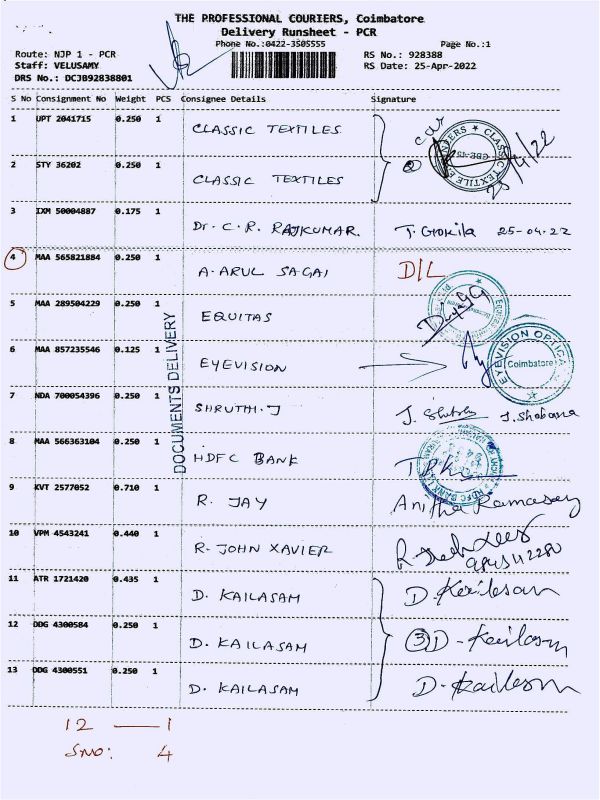 THE PROFESSIONAL COURIERS, Coimbatore
Delivery Runsheet - PCR
Phone No.:0422-3505555 Page No.:1
Route: NJP 1 - PCR RS No.: 928388
Staff: VELUSAMY RS Date: 25-Apr-2022
DRS No.: DCJB92838801
S No Consignment No Weight PCS Consignee Details Signature
1 UPT 2041715 0.250 1 CLASSIC TEXTILES
2 STY 36202 0.250 1 CLASSIC TEXTILES
CLASSIC TEXTILE
CBE-45
3 IXM 50004887 0.175 1 Dr. C. R. RAJKUMAR. T. Gokila 25-04-22
4 MAA 565821884 0.250 1 A. ARUL SAGAI D/L
5 MAA 289504229 0.250 1 EQUITAS
6 MAA 857235546 0.125 1 EYEVISION
EYEVISION OPTICA
Coimbatore
7 NDA 700054396 0.250 1 SHRUTHI. J J. Shobana
DOCUMENTS DELIVERY
8 MAA 566363104 0.250 1 HDFC BANK
HDFC BANK
9 KVT 2577052 0.710 1 R. JAY Anitha Ramasay
10 VPM 4543241 0.440 1 R. JOHN XAVIER
11 ATR 1721420 0.435 1 D. KAILASAM D. Kailasam
12 DDG 4300584 0.250 1 D. KAILASAM 3 D. Kailasam
13 DDG 4300551 0.250 1 D. KAILASAM D. Kailasam
12 — 1
SNO: 4